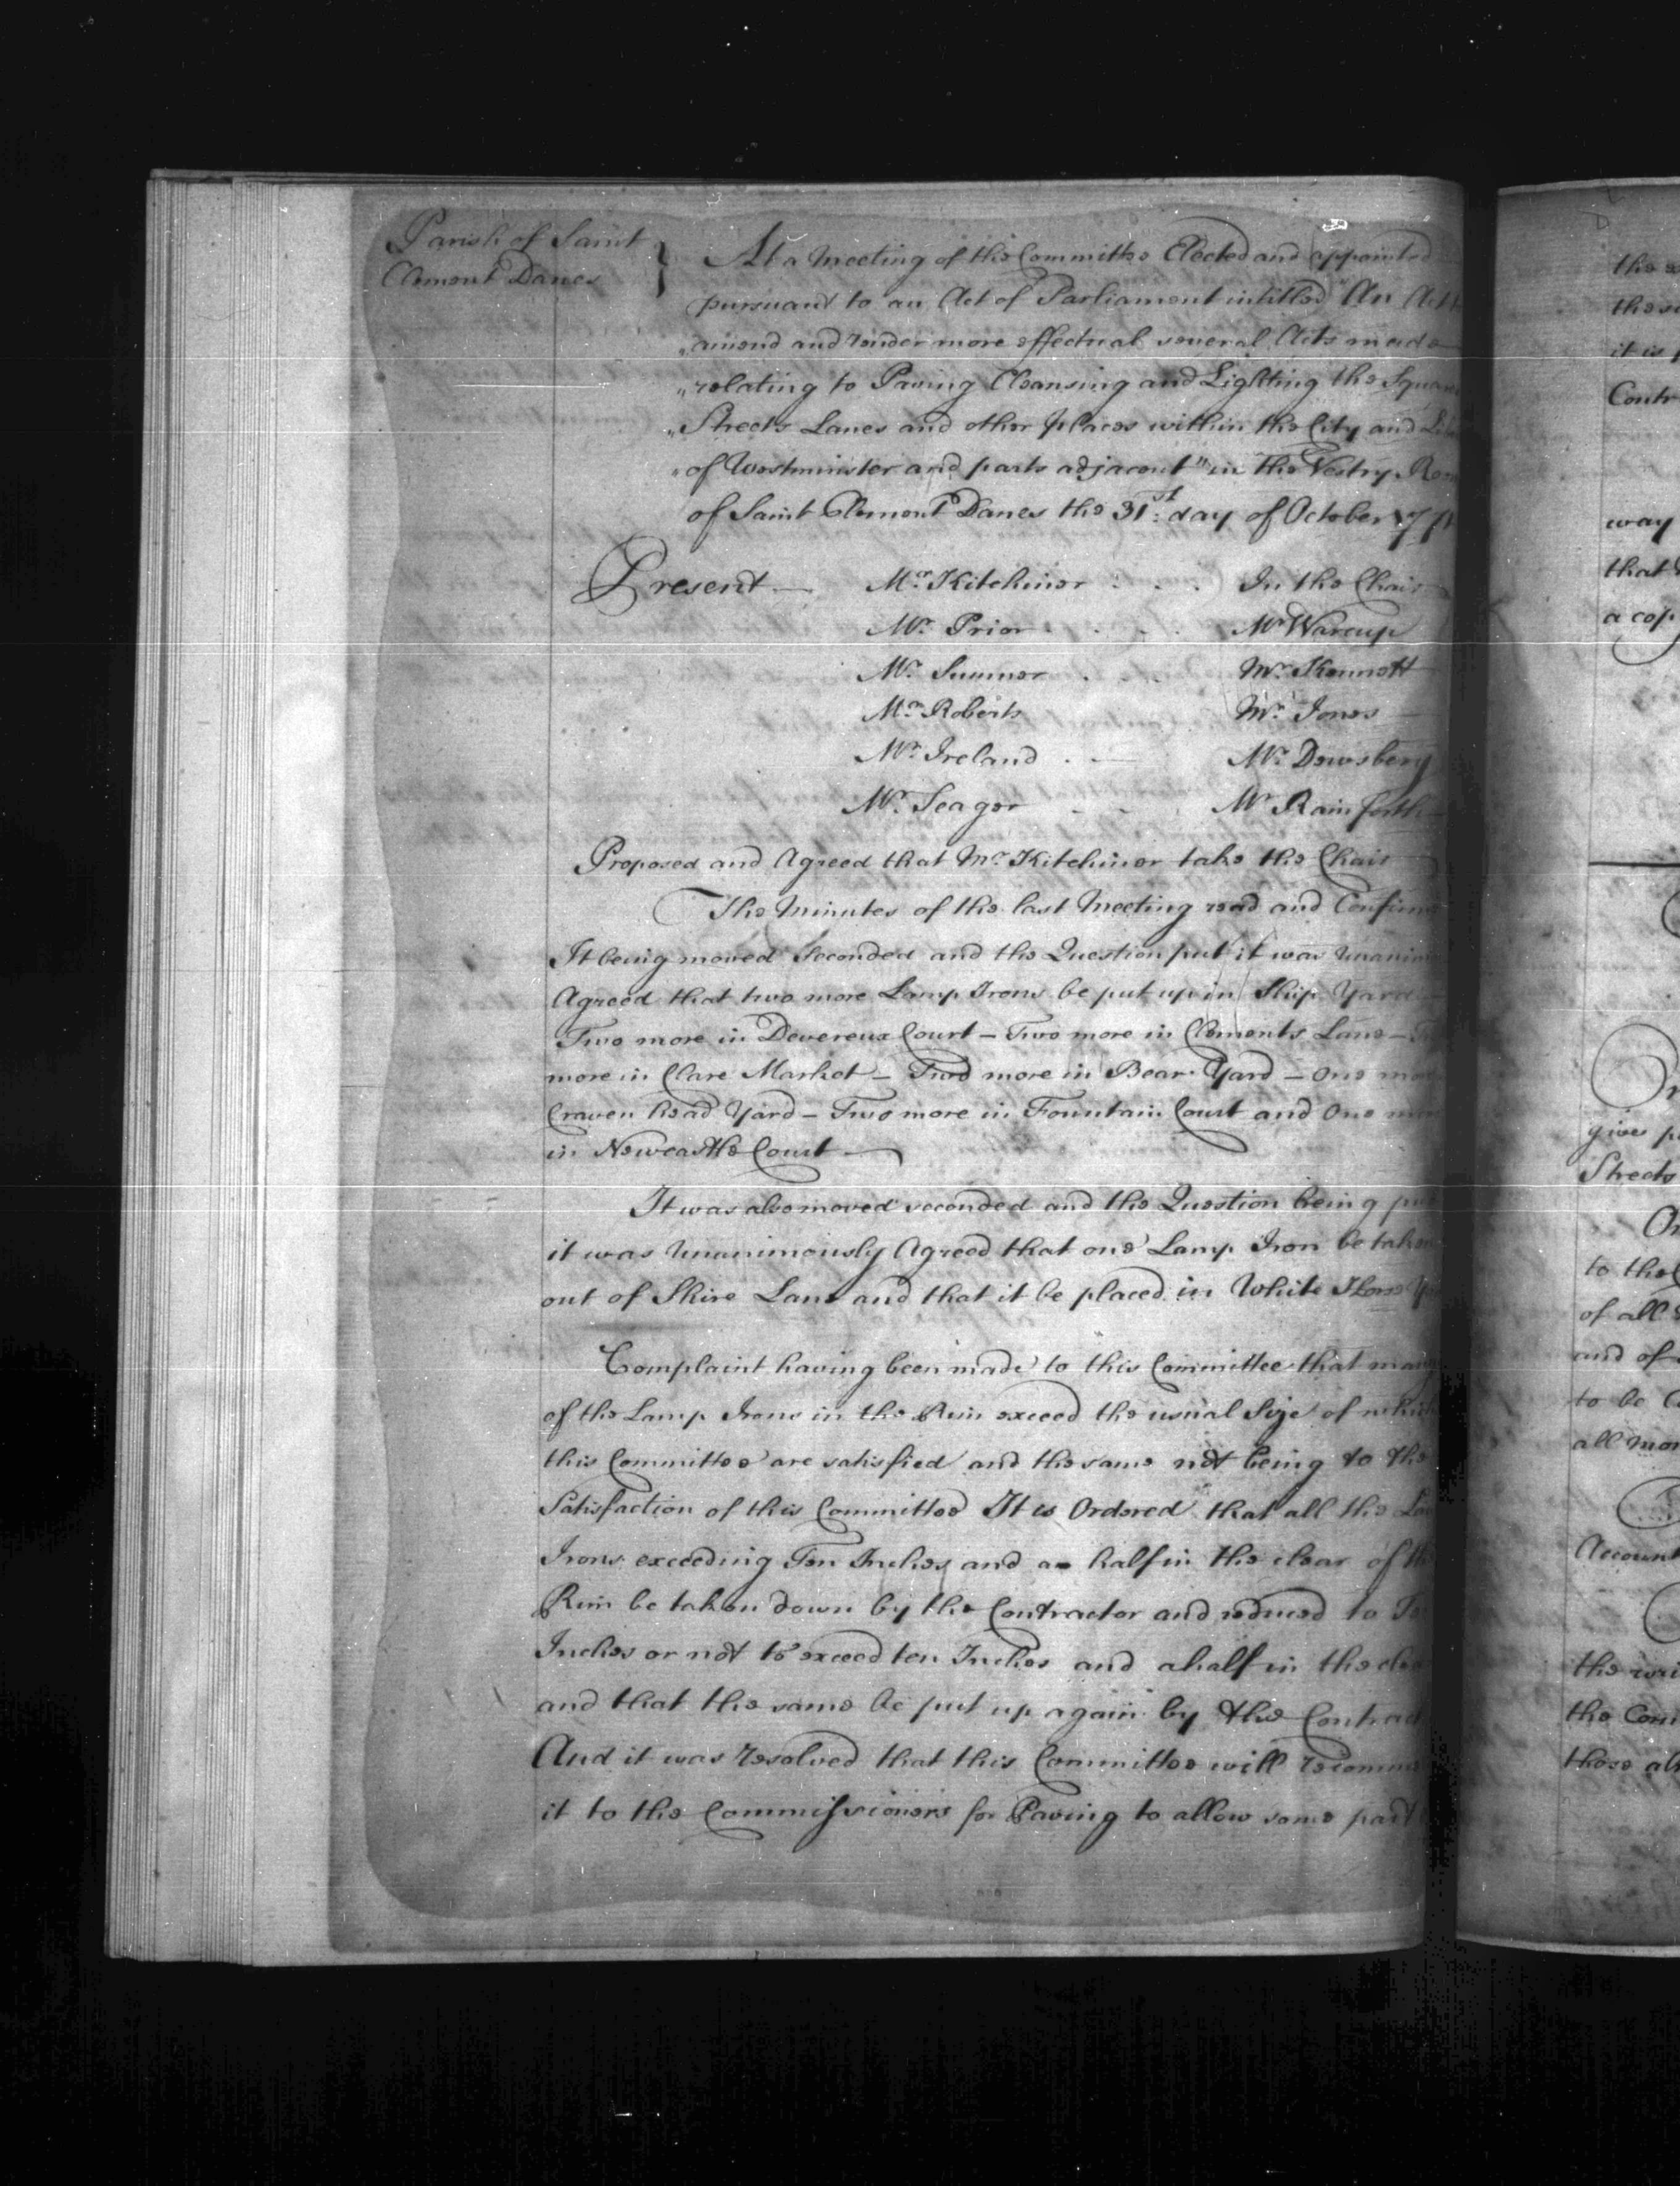 Parish of Saint
Clement Danes
At a Meeting of the Committee Elected and appointed
pursuant to an Act of Parliament intitled "An Act
"amend and render more effectual several Acts made
"relating to Paving Cleansing and Lighting the Squares
"Streets Lanes and other places within the City and
"of Westminster and parts adjacent" in the Vestry
of Saint Clement Danes the 31st day of October
Present Mr Kitchiner In the Chair
Mr Prior Mr Warcup
Mr Sumner Mr Kennett
Mr Roberts Mr Jones
Mr Ireland Mr Dewsbery
Mr Seager Mr Rainforth
Proposed and Agreed that Mr Kitchiner take the Chair
The Minutes of the last Meeting read and
It being moved Seconded and the Question put it was
Agreed that two more Lamp Irons be put up in Ship Yard
Two more in Devereux Court – Two more in Clements Lane –
more in Clare Market – Two more in Bear Yard – One
Craven head Yard – Two more in Fountain Court and One
in Newcastle Court
It was also moved seconded and the Question being
it was Unanimously Agreed that one Lamp Iron be taken
out of Shire Lane and that it be placed in White Horse
Complaint having been made to this Committee that many
of the Lamp Irons in the Rim exceed the usual Size of which
this Committee are satisfied and the same not being to the
Satisfaction of this Committee It is Ordered that all the
Irons exceeding Ten Inches and a half in the clear of the
Rim be taken down by the Contractor and reduced to
Inches or not to exceed ten Inches and a half in the
and that the same be put up again by the
And it was resolved that this Committee will
it to the Commissioners for Paving to allow some part
the
it is
way
that
a cop
give
Streets
to the
of all
and of
to be
all
Account
the
the
those